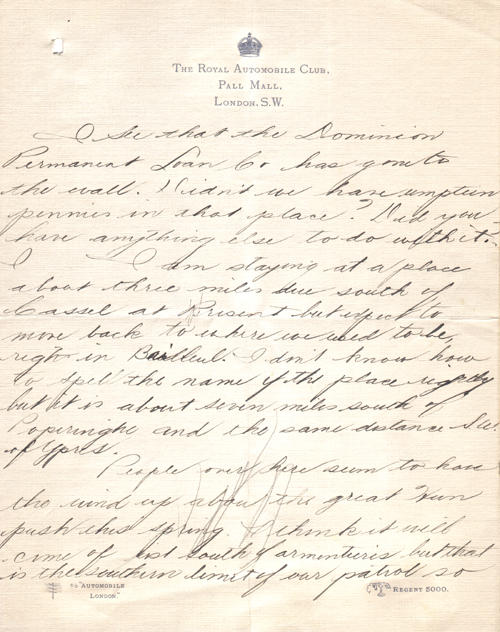 The Royal Automobile Club,
Pall Mall,
London, S.W.
I see that the Dominion
Permanent Loan Co has gone to
the wall. Didn't we have umpteen
pennies in that place? Did you
have anything else to do with it.
I I am staying at a place
about three miles due south of
Cassel at Present but expect to
move back to where we used to be,
right in Bailleul. I don't know how
to spell the name of the place rightly
but it is about seven miles south of
Poperinghe and the same distance S.W.
of Ypres.
People over here seem to have
the wind up about the great Hun
push this spring. I think it will
come of just south of armentieris but that
is the southern limit of our patrol so
"Automobile
London."
Regent 5000.